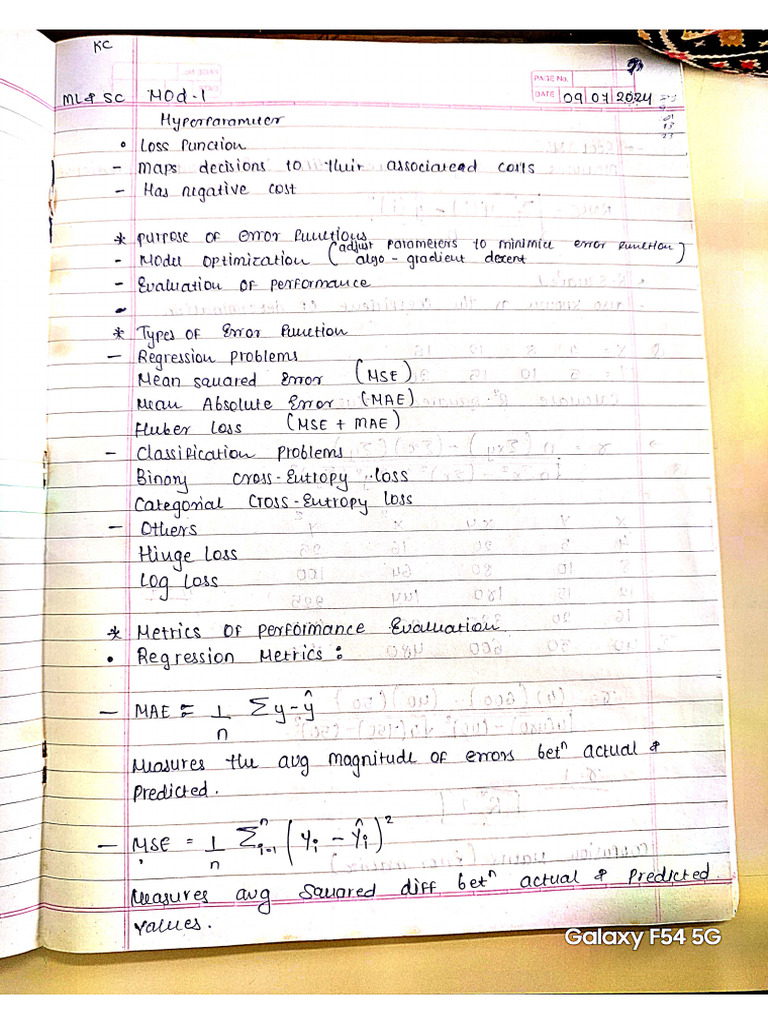 KC
PAGE No.
DATE 09 07 2024
ML & SC MOd-1
Hyperparameter
• Loss Function
- Maps decisions to their associatead costs
- Has negative cost
* Purpose of error Functions
- Model Optimization (adjust parameters to minimize error function)
algo - gradient decent
- Evaluation of performance
-
* Types of Error Function
- Regression problems
Mean squared Error (MSE)
Mean Absolute Error (MAE)
Huber loss (MSE + MAE)
- Classification Problems
Binary cross-Entropy loss
Categorial Cross-Entropy loss
- Others
Hinge Loss
Log Loss
* Metrics Of performance Evaluation
• Regression Metrics :
- MAE = 1/n Σ y - ŷ
Measures the avg magnitude of errors betⁿ actual &
Predicted.
- MSE = 1/n Σⁿᵢ₌₁ (Yᵢ - Ŷᵢ)²
Measures avg squared diff betⁿ actual & predicted
values.
Galaxy F54 5G